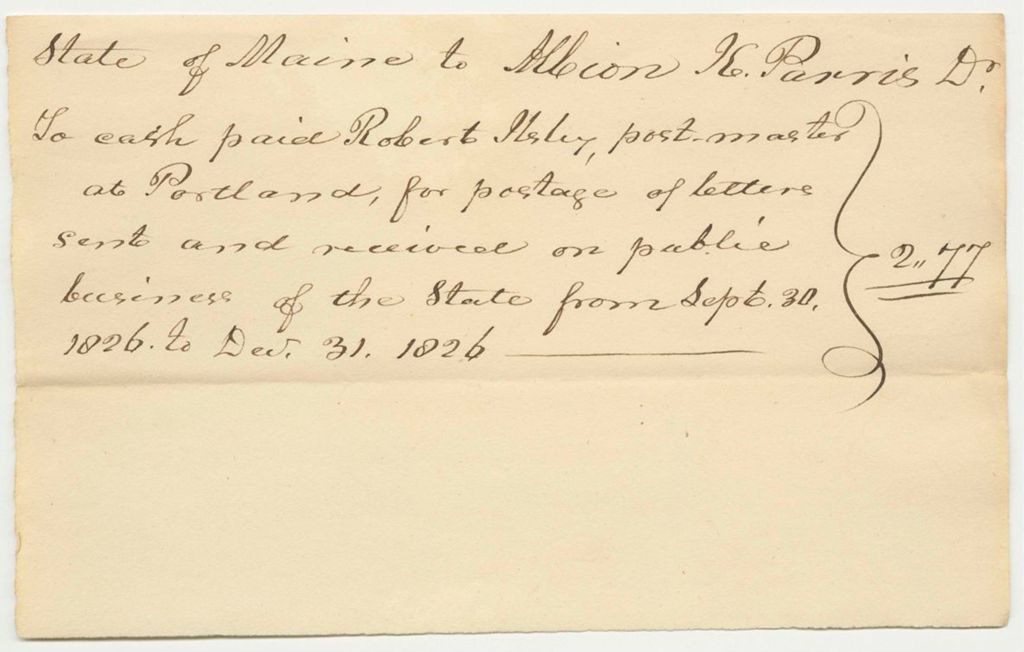 State of Maine to Albion K. Parris Dr.
To cash paid Robert Ilsley, post-master
at Portland, for postage of letters
sent and received on public
business of the State from Sept. 30.
1826. to Dec. 31. 1826
2,,77